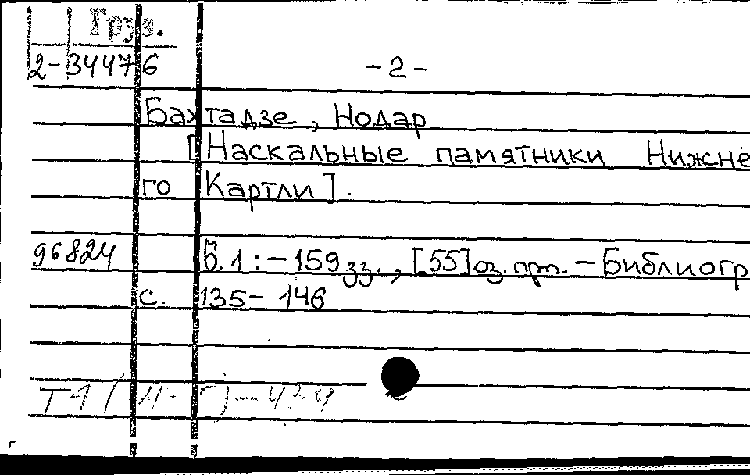 Груз.
2-34476
-2-
Бахтадзе, Нодар
[Наскальные памятники Нижне
го Картли].
96824
б.1:-159 ვვ., [55]
- Библиогр
с. 135-146